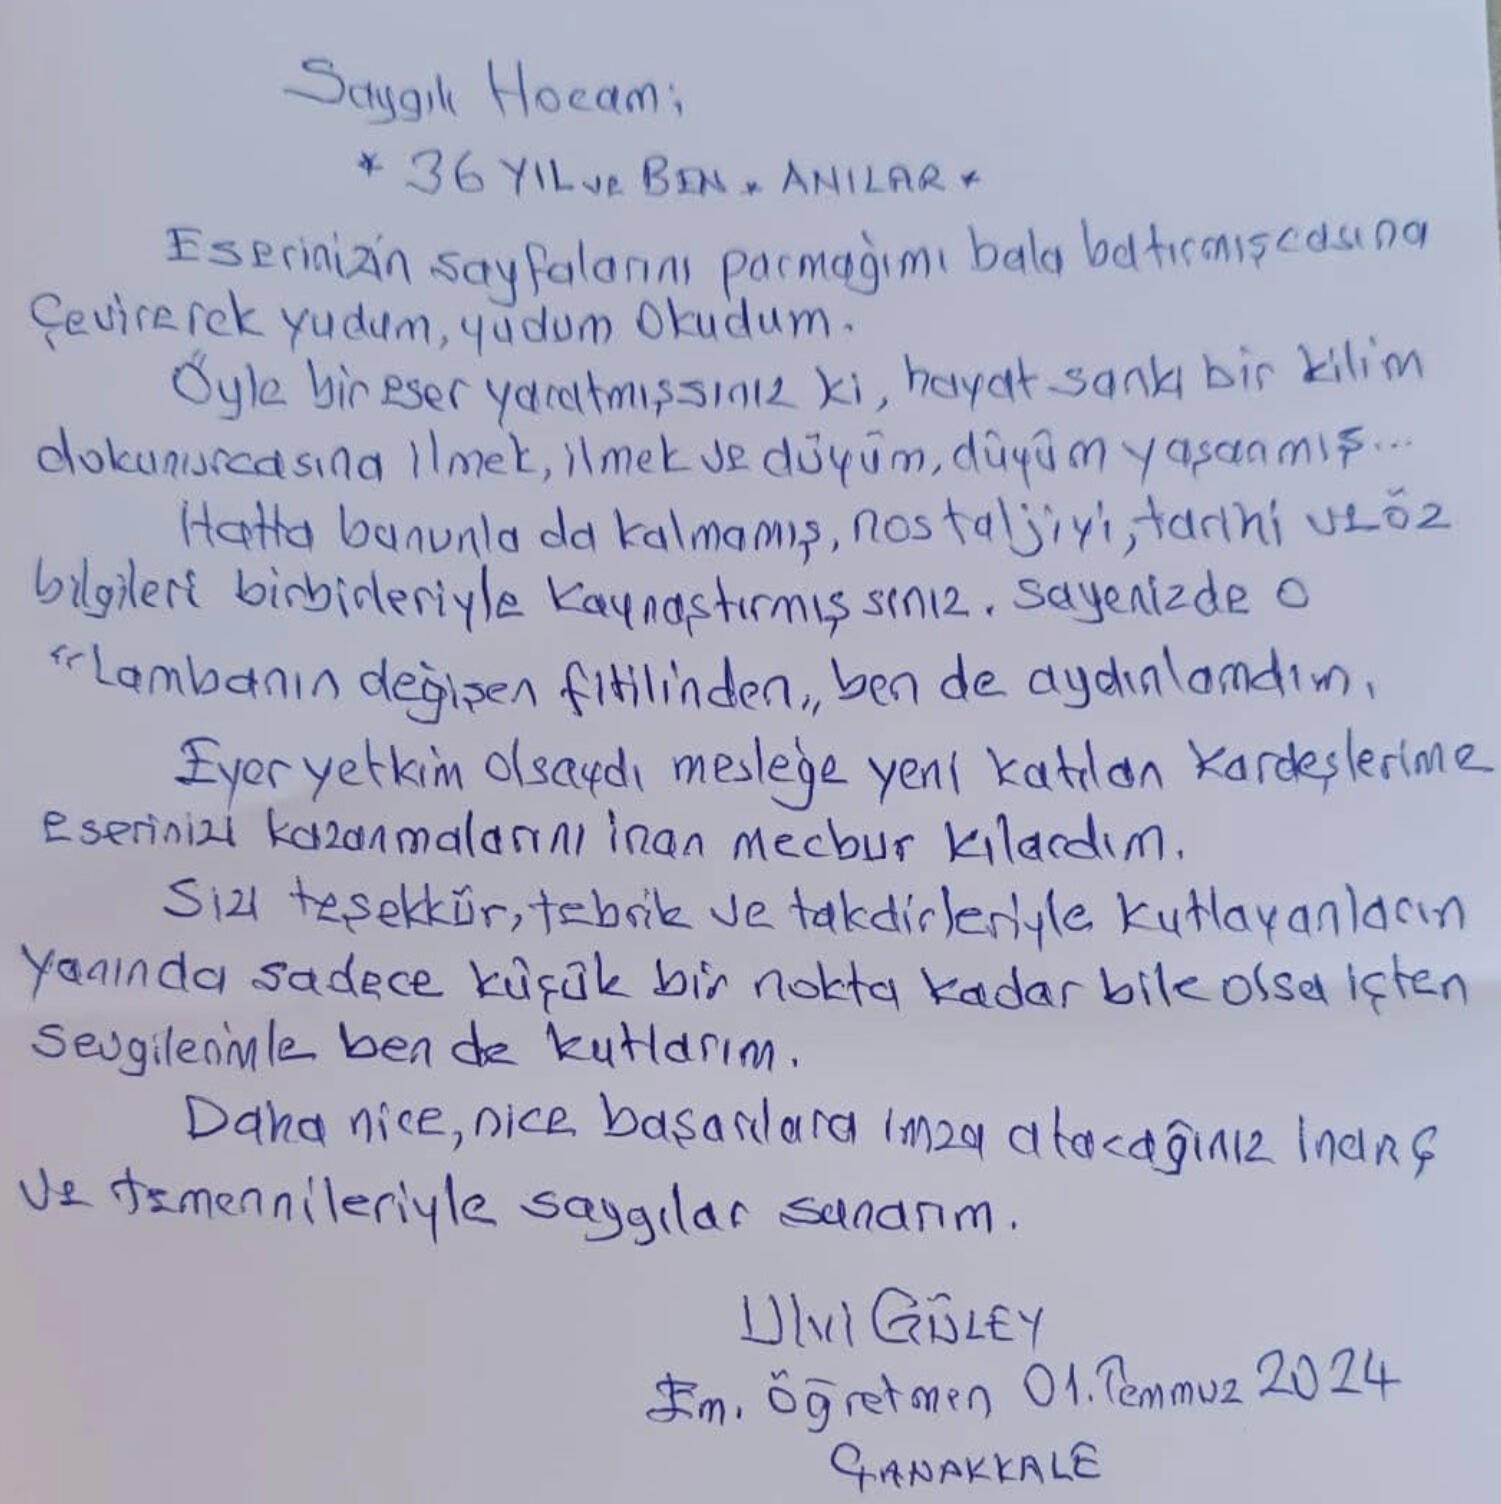 Saygılı Hocam;
* 36 YIL ve BEN * ANILAR *
Eserinizin sayfalarını parmağımı bala batırmışcasına
Çevirerek yudum, yudum Okudum.
Öyle bir eser yaratmışsınız ki, hayat sanki bir kilim
dokunurcasına ilmek, ilmek ve düyüm, düyüm yaşanmış...
Hatta bununla da kalmamış, nostaljiyi, tarihi ve öz
bilgileri birbirleriyle Kaynaştırmışsınız. Sayenizde O
"Lambanın değişen fitilinden,, ben de aydınlandım.
Eyer yetkim olsaydı mesleğe yeni katılan Kardeşlerime
eserinizi kazanmalarını inan mecbur kılardım.
Sizi teşekkür, tebrik ve takdirleriyle kutlayanların
yanında sadece küçük bir nokta kadar bile olsa içten
Sevgilerimle ben de kutlarım.
Daha nice, nice başarılara imza atacağınız inanç
ve temennileriyle saygılar sunarım.
Ulvi GÜLEY
Em. Öğretmen 01. Temmuz 2024
ÇANAKKALE